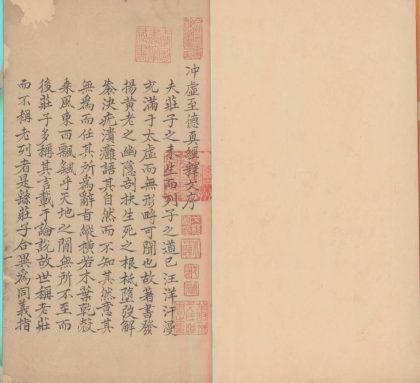 冲虛至德真經釋文序
夫莊子之未生而列子之道已汪洋汗漫
充滿于太虛而無形畤可聞也故著書發
揚黃老之幽隱剖抉生死之根柢墮弢解
袠決疣潰癰語其自然而不知其然意其
無為而任其所為辭旨縱橫若木葉乾殼
乘風東西飄飖乎天地之間無所不至而
後莊子多稱其言載于論說故世稱老莊
而不稱老列者是繇莊子合異為同義指